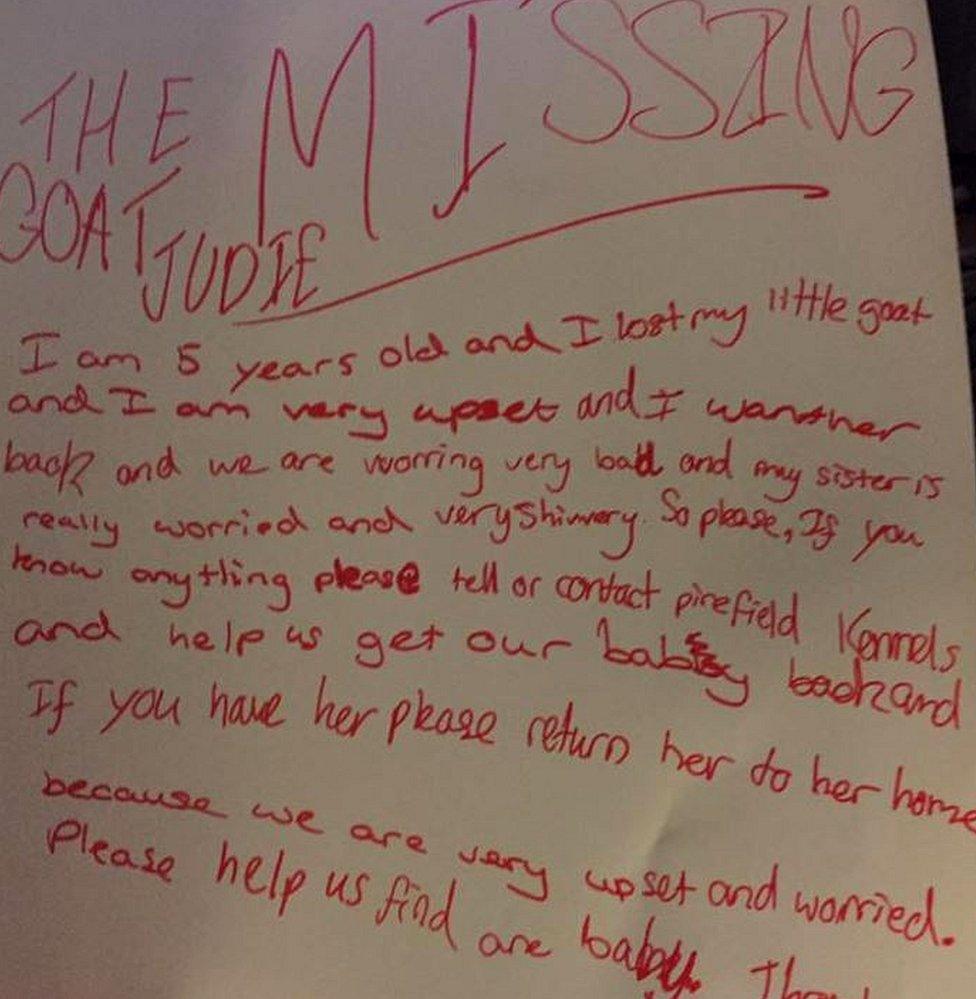 THE MISSING
GOAT JUDIE
I am 5 years old and I lost my little goat
and I am very upset and I want her
back and we are worring very bad and my sister is
really worried and very Shivvery. So please, If you
know anything please tell or contact pinefield Kennels
and help us get our baby back and
If you have her please return her to her home
because we are very upset and worried.
Please help us find are baby.